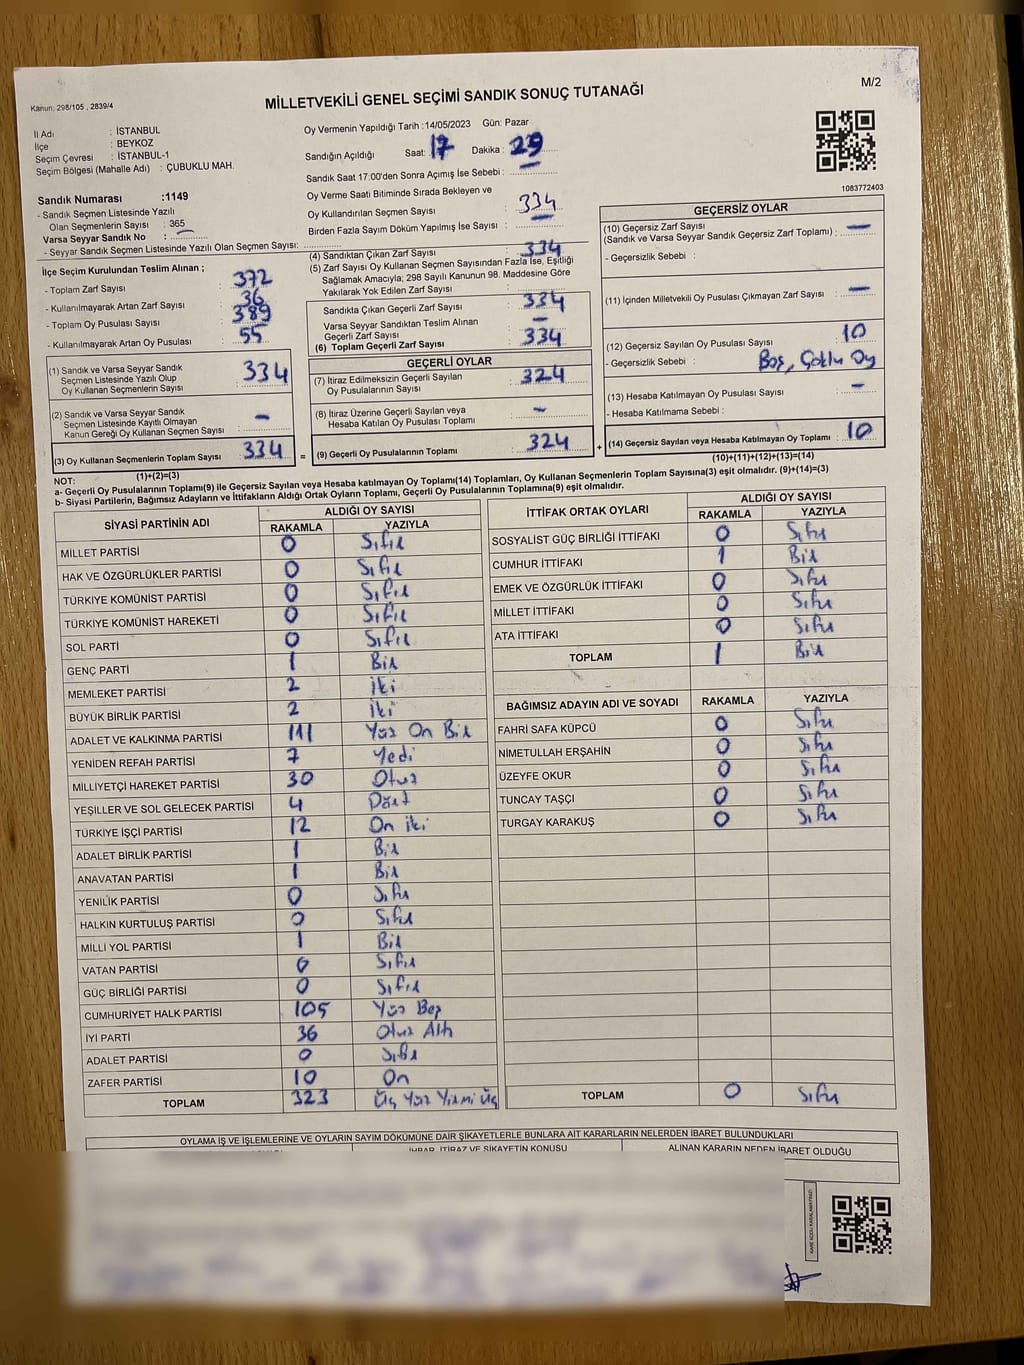 Kanun: 298/105 , 2839/4
MİLLETVEKİLİ GENEL SEÇİMİ SANDIK SONUÇ TUTANAĞI
M/2
İl Adı : İSTANBUL
İlçe : BEYKOZ
Seçim Çevresi : İSTANBUL-1
Seçim Bölgesi (Mahalle Adı) : ÇUBUKLU MAH.
Sandık Numarası :1149
- Sandık Seçmen Listesinde Yazılı
Olan Seçmenlerin Sayısı : 365
Varsa Seyyar Sandık No :
- Seyyar Sandık Seçmen Listesinde Yazılı Olan Seçmen Sayısı:
Oy Vermenin Yapıldığı Tarih :14/05/2023 Gün: Pazar
Sandığın Açıldığı Saat: 17 Dakika : 29
Sandık Saat 17:00'den Sonra Açımış İse Sebebi :
Oy Verme Saati Bitiminde Sırada Bekleyen ve
Oy Kullandırılan Seçmen Sayısı : 334
Birden Fazla Sayım Döküm Yapılmış İse Sayısı :
1083772403
İlçe Seçim Kurulundan Teslim Alınan ;
- Toplam Zarf Sayısı : 372
- Kullanılmayarak Artan Zarf Sayısı : 36
- Toplam Oy Pusulası Sayısı : 389
- Kullanılmayarak Artan Oy Pusulası : 55
(1) Sandık ve Varsa Seyyar Sandık
Seçmen Listesinde Yazılı Olup
Oy Kullanan Seçmenlerin Sayısı : 334
(2) Sandık ve Varsa Seyyar Sandık
Seçmen Listesinde Kayıtlı Olmayan
Kanun Gereği Oy Kullanan Seçmen Sayısı : -
(3) Oy Kullanan Seçmenlerin Toplam Sayısı : 334
(1)+(2)=(3)
(4) Sandıktan Çıkan Zarf Sayısı : 334
(5) Zarf Sayısı Oy Kullanan Seçmen Sayısından Fazla İse, Eşitliği
Sağlamak Amacıyla; 298 Sayılı Kanunun 98. Maddesine Göre
Yakılarak Yok Edilen Zarf Sayısı :
Sandıkta Çıkan Geçerli Zarf Sayısı : 334
Varsa Seyyar Sandıktan Teslim Alınan
Geçerli Zarf Sayısı : -
(6) Toplam Geçerli Zarf Sayısı : 334
GEÇERLİ OYLAR
(7) İtiraz Edilmeksizin Geçerli Sayılan
Oy Pusulalarının Sayısı : 324
(8) İtiraz Üzerine Geçerli Sayılan veya
Hesaba Katılan Oy Pusulası Toplamı : -
= (9) Geçerli Oy Pusulalarının Toplamı : 324 +
GEÇERSİZ OYLAR
(10) Geçersiz Zarf Sayısı
(Sandık ve Varsa Seyyar Sandık Geçersiz Zarf Toplamı) : -
- Geçersizlik Sebebi :
(11) İçinden Milletvekili Oy Pusulası Çıkmayan Zarf Sayısı : -
(12) Geçersiz Sayılan Oy Pusulası Sayısı : 10
- Geçersizlik Sebebi : Boş, Çoklu Oy
(13) Hesaba Katılmayan Oy Pusulası Sayısı : -
- Hesaba Katılmama Sebebi :
(14) Geçersiz Sayılan veya Hesaba Katılmayan Oy Toplamı : 10
(10)+(11)+(12)+(13)=(14)
NOT:
a- Geçerli Oy Pusulalarının Toplamı(9) ile Geçersiz Sayılan veya Hesaba katılmayan Oy Toplamı(14) Toplamları, Oy Kullanan Seçmenlerin Toplam Sayısına(3) eşit olmalıdır. (9)+(14)=(3)
b- Siyasi Partilerin, Bağımsız Adayların ve İttifakların Aldığı Ortak Oyların Toplamı, Geçerli Oy Pusulalarının Toplamına(9) eşit olmalıdır.
SİYASİ PARTİNİN ADI ALDIĞI OY SAYISI
RAKAMLA YAZIYLA
MİLLET PARTİSİ 0 Sıfır
HAK VE ÖZGÜRLÜKLER PARTİSİ 0 Sıfır
TÜRKİYE KOMÜNİST PARTİSİ 0 Sıfır
TÜRKİYE KOMÜNİST HAREKETİ 0 Sıfır
SOL PARTİ 0 Sıfır
GENÇ PARTİ 1 Bir
MEMLEKET PARTİSİ 2 İki
BÜYÜK BİRLİK PARTİSİ 2 İki
ADALET VE KALKINMA PARTİSİ 111 Yüz On Bir
YENİDEN REFAH PARTİSİ 7 Yedi
MİLLİYETÇİ HAREKET PARTİSİ 30 Otuz
YEŞİLLER VE SOL GELECEK PARTİSİ 4 Dört
TÜRKİYE İŞÇİ PARTİSİ 12 On iki
ADALET BİRLİK PARTİSİ 1 Bir
ANAVATAN PARTİSİ 1 Bir
YENİLİK PARTİSİ 0 Sıfır
HALKIN KURTULUŞ PARTİSİ 0 Sıfır
MİLLİ YOL PARTİSİ 1 Bir
VATAN PARTİSİ 0 Sıfır
GÜÇ BİRLİĞİ PARTİSİ 0 Sıfır
CUMHURİYET HALK PARTİSİ 105 Yüz Beş
İYİ PARTİ 36 Otuz Altı
ADALET PARTİSİ 0 Sıfır
ZAFER PARTİSİ 10 On
TOPLAM 323 Üç Yüz Yirmi Üç
İTTİFAK ORTAK OYLARI ALDIĞI OY SAYISI
RAKAMLA YAZIYLA
SOSYALİST GÜÇ BİRLİĞİ İTTİFAKI 0 Sıfır
CUMHUR İTTİFAKI 1 Bir
EMEK VE ÖZGÜRLÜK İTTİFAKI 0 Sıfır
MİLLET İTTİFAKI 0 Sıfır
ATA İTTİFAKI 0 Sıfır
TOPLAM 1 Bir
BAĞIMSIZ ADAYIN ADI VE SOYADI RAKAMLA YAZIYLA
FAHRİ SAFA KÜPCÜ 0 Sıfır
NİMETULLAH ERŞAHİN 0 Sıfır
ÜZEYFE OKUR 0 Sıfır
TUNCAY TAŞÇI 0 Sıfır
TURGAY KARAKUŞ 0 Sıfır
TOPLAM 0 Sıfır
OYLAMA İŞ VE İŞLEMLERİNE VE OYLARIN SAYIM DÖKÜMÜNE DAİR ŞİKAYETLERLE BUNLARA AİT KARARLARIN NELERDEN İBARET BULUNDUKLARI
İHBAR, İTİRAZ VE ŞİKAYETİN KONUSU ALINAN KARARIN NEDEN İBARET OLDUĞU